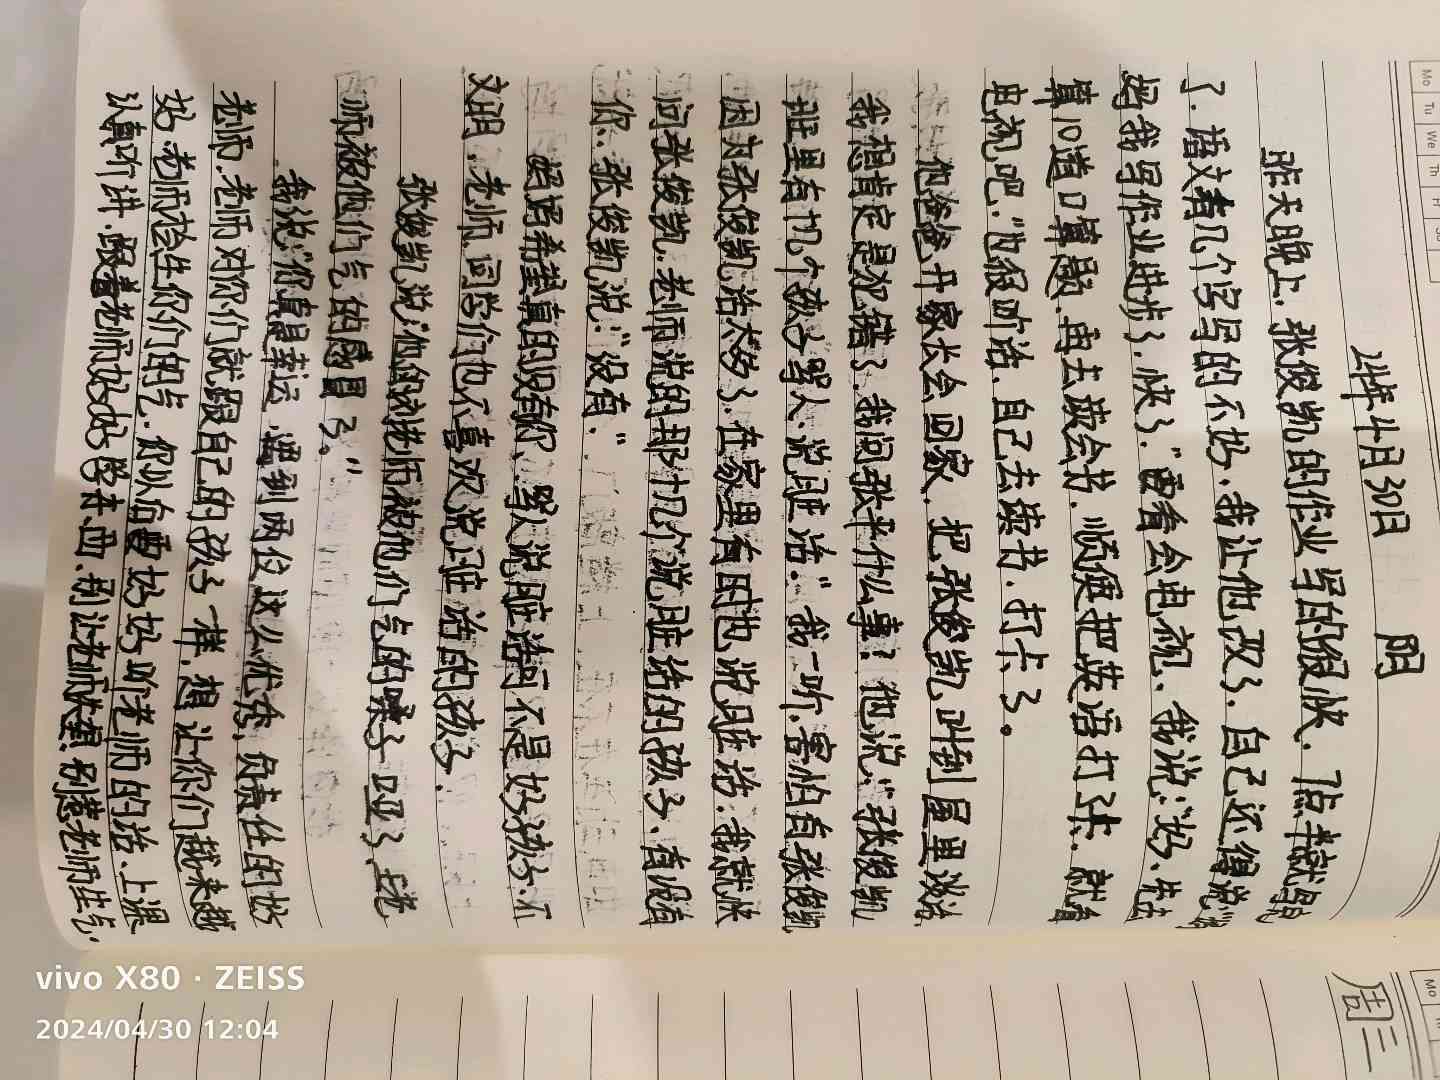 Mo Tu We Th Fr Sa
24年4月30日 阴
昨天晚上,张俊凯的作业写的很快,7点半就写完
了,语文有几个字写的不好,我让他改了,自己还得说:"
妈我写作业进步了,快了。"要看会电视,我说:"好,先去
算10道口算题,再去读会书,顺便把英语打卡,就看
电视吧。"他很听话,自己去读书,打卡了。
他爸爸开家长会回家,把张俊凯叫到屋里谈话
我想肯定是犯错了,我问张平什么事?他说:"张俊凯
班里有几个孩子骂人,说脏话。"我一听,害怕有张俊凯
因为张俊凯话太多了,在家里有时也说脏话,我就快
问张俊凯,老师说的那十几个说脏话的孩子,有没有
你,张俊凯说:"没有。"
妈妈希望真的没有你,骂人说脏话可不是好孩子,不
文明,老师,同学们也不喜欢说脏话的孩子。
张俊凯说:他的老师被他们气的嗓子哑了,
师被他们气的感冒了。"
我说:你真是幸运,遇到两位这么优秀,负责任的好
老师,老师对你们就跟自己的孩子一样,想让你们越来越
好,老师捡生你们的气,你以后要好好听老师的话,上课
认真听讲,跟着老师好好学本曲,别让老师失望,别惹老师生气。
Mo
周三
vivo X80 · ZEISS
2024/04/30 12:04